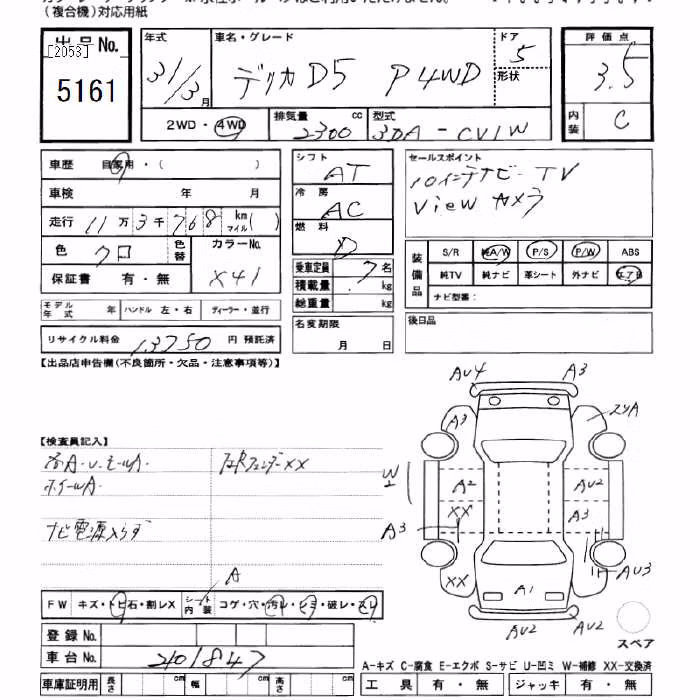 (複合機)対応用紙
出品No.
[2053]
5161
年式
31/3月
車名・グレード
デリカD5 P4WD
ドア
5
形状
評価点
3.5
内装
C
2WD・4WD
排気量
2300 cc
型式
3DA-CV1W
車歴 自家用・( )
車検 年 月
走行 11万3千768 km マイル( )
色 クロ 色替
カラーNo.
X41
保証書 有・無
モデル年式 年 ハンドル 左・右 ディーラー・並行
リサイクル料金 13750 円 預託済
シフト
AT
冷房
AC
燃料
D
乗車定員 7名
積載量 kg
総重量 kg
名変期限
月 日
セールスポイント
10インチナビ-TV
Viewカメラ
装備品
S/R 純A/W P/S P/W ABS
純TV 純ナビ 革シート 外ナビ エアB
ナビ型番:
後日品
【出品店申告欄(不良箇所・欠品・注意事項等)】
【検査員記入】
各A・U・モールA・
ホイールA・
ナビ電源入らず
左Rフェンダーxx
A
FW キズ・トビ石・割レX シート内装 コゲ・穴・汚レ・シミ・破レ・スレ
登録No.
車台No. 201847
車庫証明用 長さ cm 幅 cm 高さ cm
AU4
A3
A3
W
A2
AU2
XX
A3
A3
XX
A1
AU3
AU2
AU2
スペア
A-キズ C-腐食 E-エクボ S-サビ U-凹ミ W-補修 XX-交換済
工具 有・無 ジャッキ 有・無